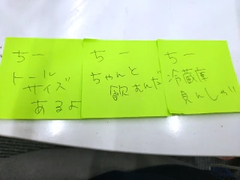 ちー
トール
サイズ
あるよ
ちー
ちゃんと
飲むんだ
ちー
冷蔵庫
見んしゃい